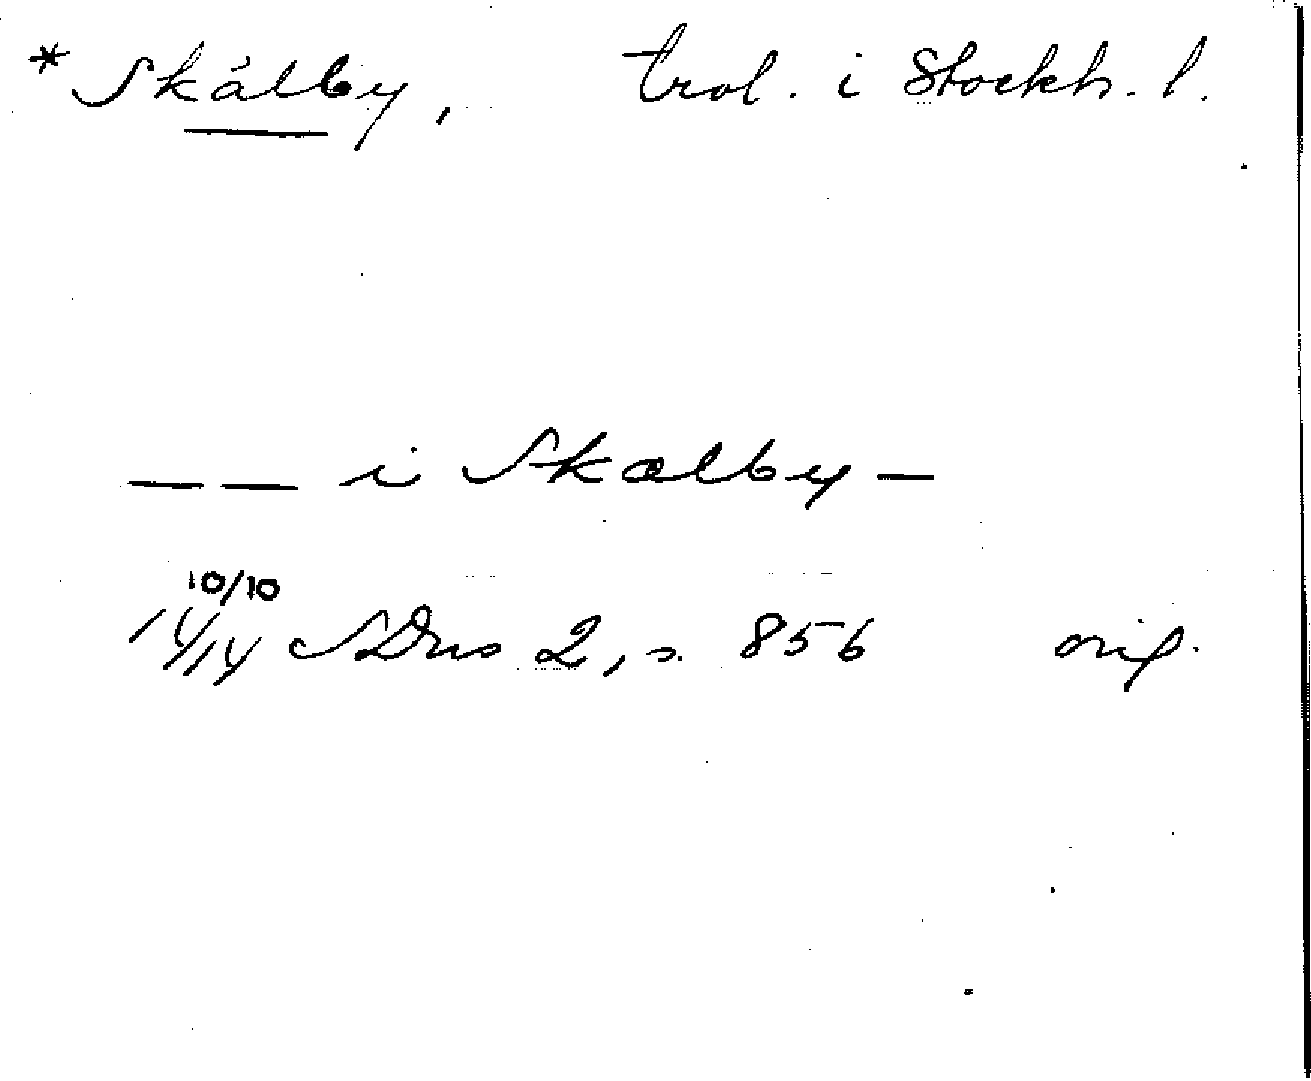 * Skålby, trol. i Stockh. l.
— — i Skalby —
10/10
1414 SDns 2, s. 856 orig.